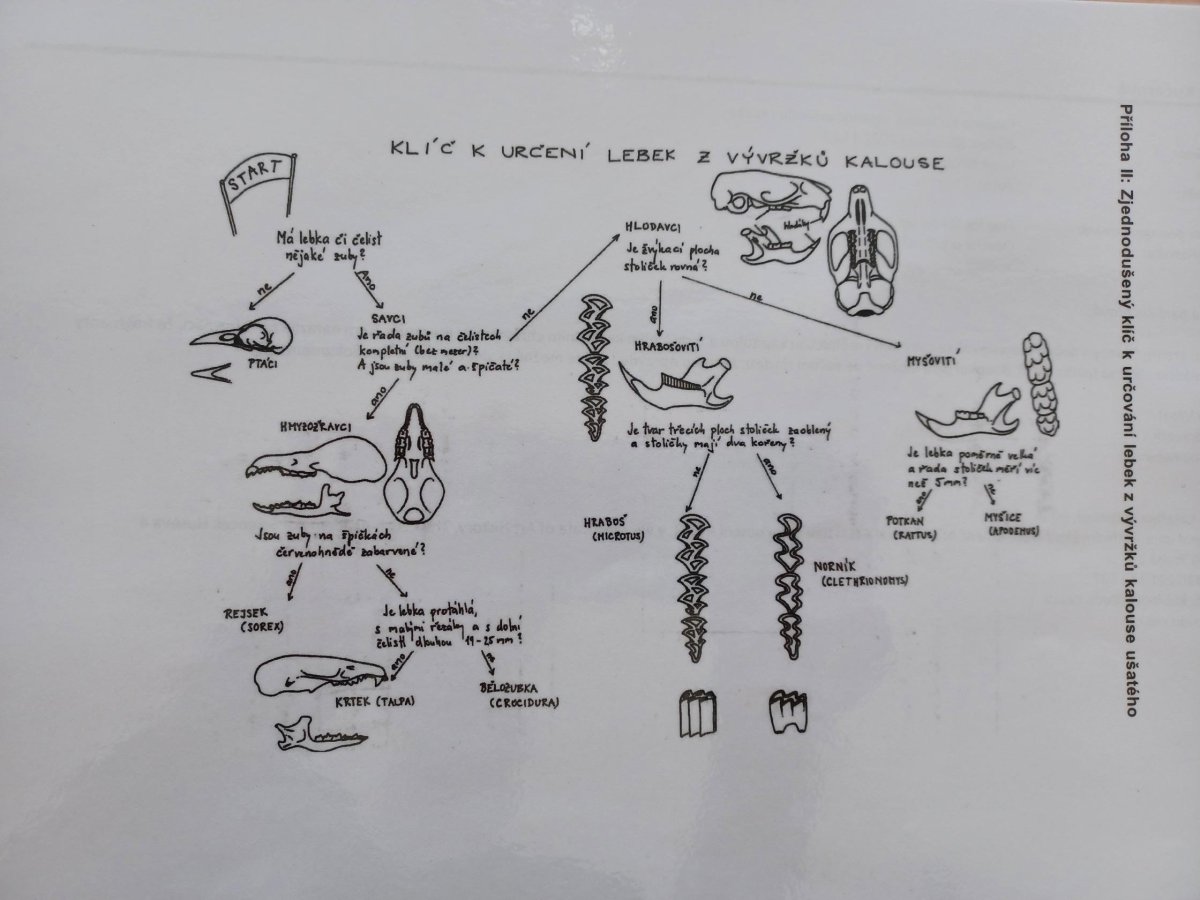 KLÍČ K URČENÍ LEBEK Z VÝVRŽKŮ KALOUSE
START
Má lebka či čelist
nějaké zuby?
ne
Ano
PTÁCI
SAVCI
Je řada zubů na čelistech
kompletní (bez mezer)?
A jsou zuby malé a špičaté?
ne
ano
HMYZOŽRAVCI
Jsou zuby na špičkách
červenohnědě zabarvené?
ano
ne
REJSEK
(SOREX)
Je lebka protáhlá,
s malými řezáky a s dolní
čelistí dlouhou 19-25mm?
ano
ne
KRTEK (TALPA)
BĚLOZUBKA
(CROCIDURA)
HLODAVCI
Je žvýkací plocha
stoliček rovná?
hlodáky
ano
ne
HRABOŠOVITÍ
Je tvar třecích ploch stoliček zaoblený
a stoličky mají dva kořeny?
ne
ano
HRABOŠ
(MICROTUS)
NORNÍK
(CLETHRIONOMYS)
MYŠOVITÍ
Je lebka poměrně velká
a řada stoliček měří víc
než 5mm?
ano
ne
POTKAN
(RATTUS)
MYŠICE
(APODEMUS)
Příloha II: Zjednodušený klíč k určování lebek z vývržků kalouse ušatého